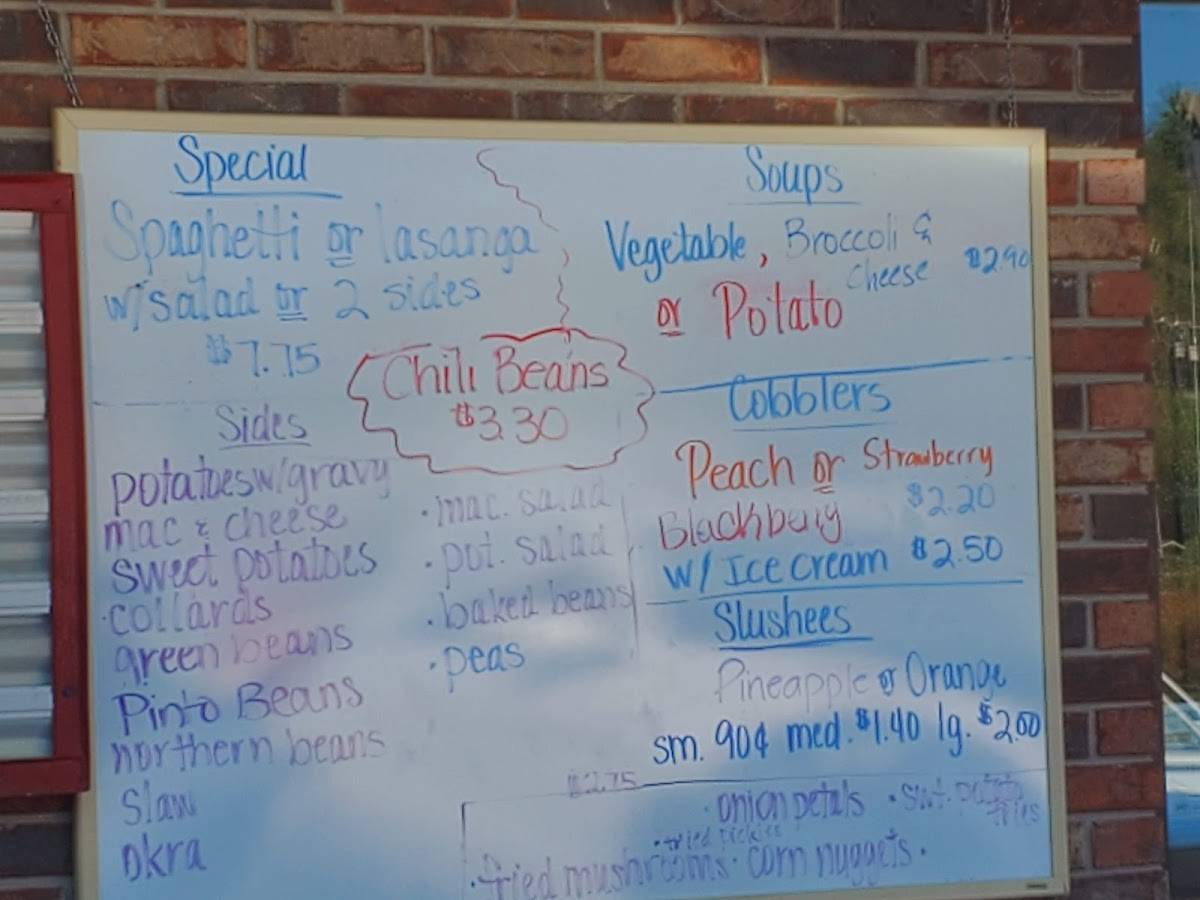 Special
Spaghetti or lasanga
w/salad or 2 sides
$7.75
Chili Beans
$3.30
Sides
potatoes w/gravy
mac & cheese
sweet potatoes
collards
green beans
Pinto Beans
northern beans
Slaw
okra
· mac. salad
· pot. salad
· baked beans
· peas
Soups
Vegetable, Broccoli &
cheese $2.90
or Potato
Cobblers
Peach or Strawberry
$2.20
Blackbury
w/ Ice cream $2.50
Slushees
Pineapple or Orange
sm. 90¢ med. $1.40 lg. $2.00
$2.75
· onion petals · swt. potato
fries
· fried pickles
· fried mushrooms · corn nuggets ·